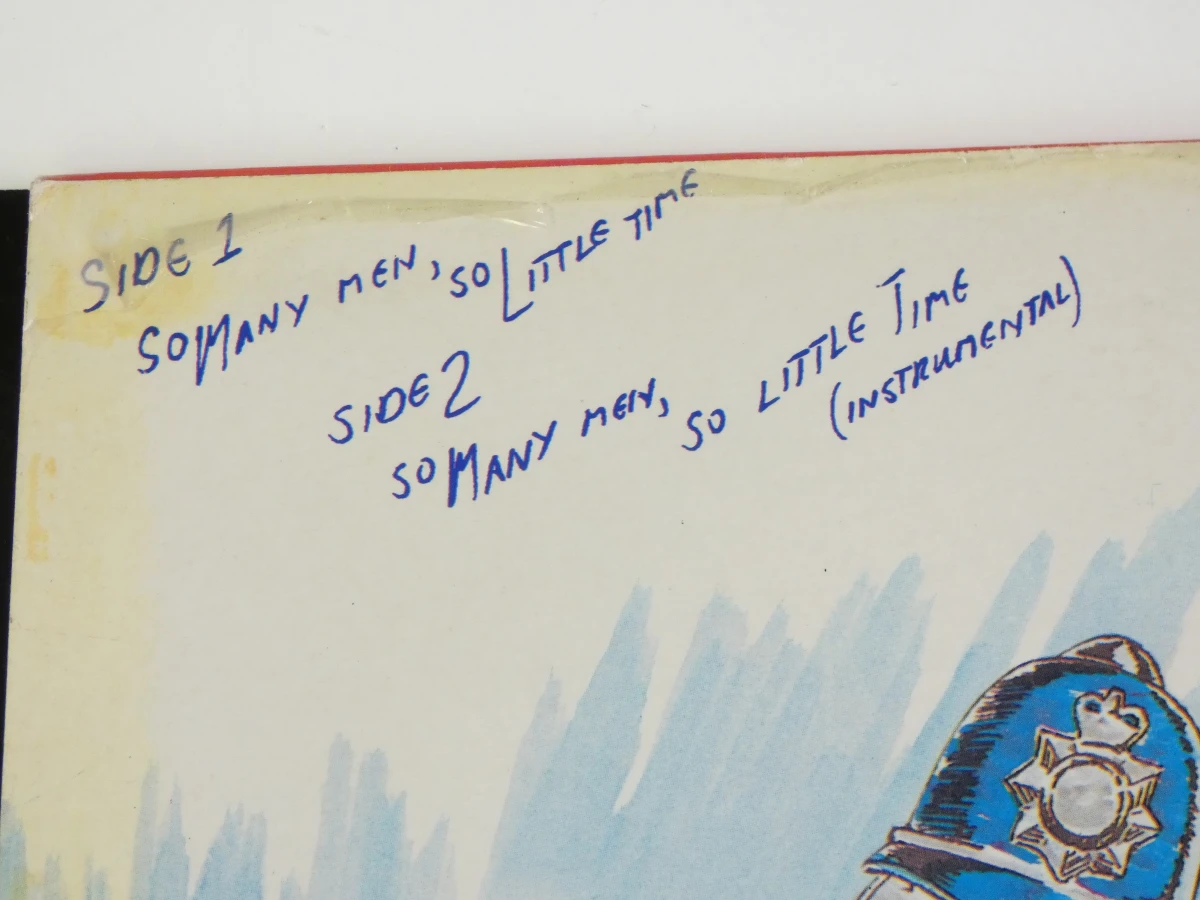 SIDE 1
SO MANY MEN, SO LITTLE TIME
SIDE 2
SO MANY MEN, SO LITTLE TIME
(INSTRUMENTAL)